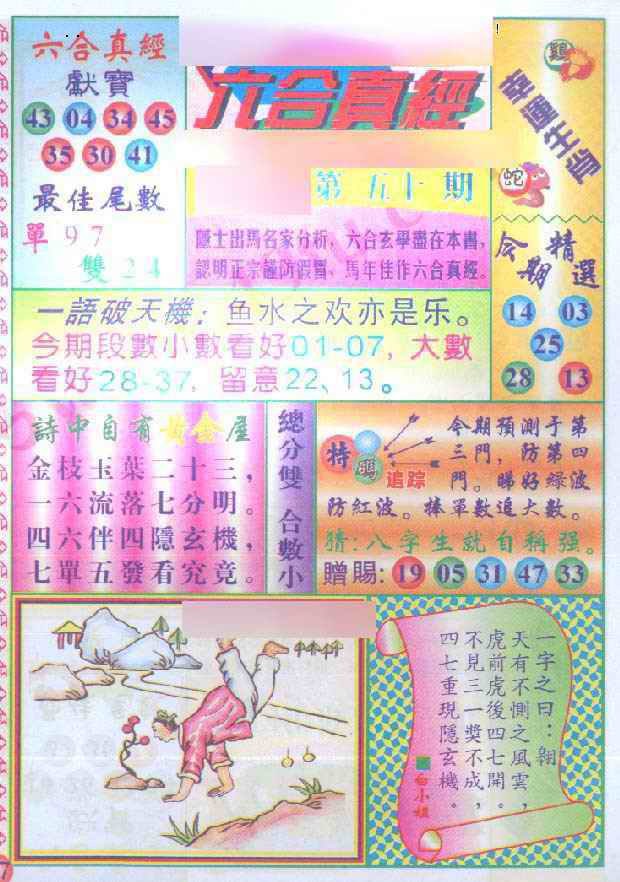 六合真經
獻寶
43 04 34 45
35 30 41
最佳尾數
單97
雙24
六合真經
第五十期
隱士出馬名家分析,六合玄學盡在本書,
認明正宗謹防假冒,馬年佳作六合真經。
雞
幸運生肖
蛇
今期精選
14 03
25
28 13
一語破天機:鱼水之欢亦是乐。
今期段數小數看好01-07,大數
看好28-37,留意22、13。
詩中自有黄金屋
金枝玉葉二十三,
一六流落七分明。
四六伴四隱玄機,
七單五發看究竟。
總分雙 合數小
特碼追踪
今期預測于第
三門,防第四
門。睇好绿波
防紅波。棒單數追大數。
猜:八字生就自稱强。
贈賜:19 05 31 47 33
一字之曰:翱
天有不惻之風雲,
虎前虎後四七開。
不見三一獎不成,
四七重現隱玄機。
白小姐
7